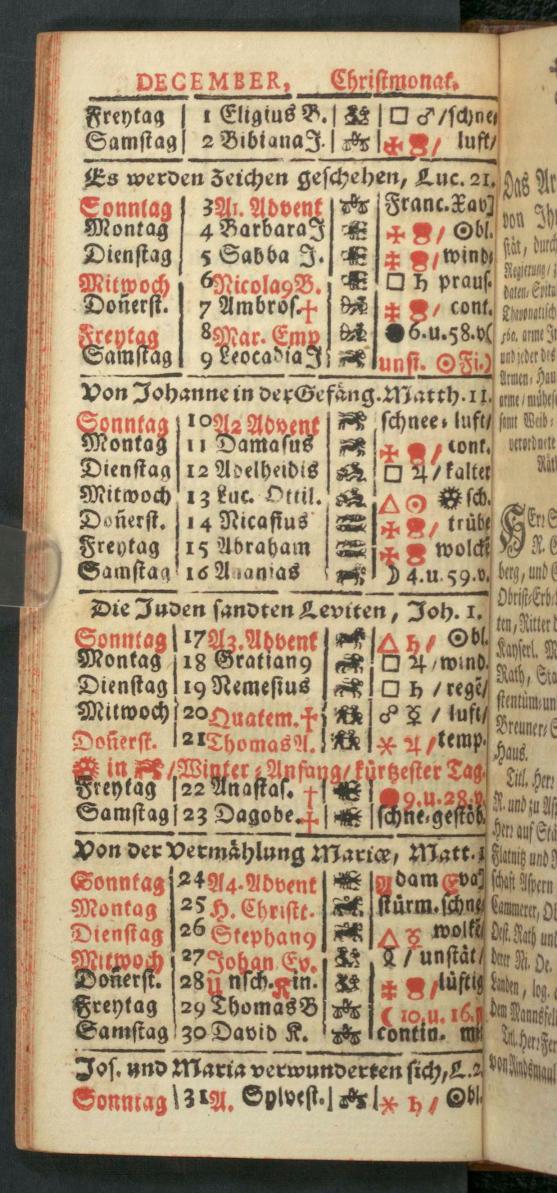 DECEMBER, Christmonat.
Freytag 1 Eligius B. □ ♂ /schne/
Samstag 2 Bibiana J. luft/
Es werden Zeichen geschehen, Luc. 21.
Sonntag 3 A1. Advent Franc. Xav
Montag 4 Barbara J ☉bl.
Dienstag 5 Sabba J. wind/
Mitwoch 6 Nicola9 B. □ ♄ praus.
Doñerst. 7 Ambros. † cont.
Freytag 8 Mar. Emp ● 6. u. 58. v(
Samstag 9 Leocadia J unsi. ☉ Fi.)
Von Johanne in der Gefäng. Matth. 11.
Sonntag 10 A2 Advent schnee- luft/
Montag 11 Damasus cont.
Dienstag 12 Adelheidis □ ♃ /kalter
Mitwoch 13 Luc. Ottil. △ ☉ sch.
Doñerst. 14 Nicasius trübe
Freytag 15 Abraham wolckē
Samstag 16 Ananias ☽ 4. u. 59. v.
Die Juden sandten Leviten, Joh. 1.
Sonntag 17 A3. Advent △ ♄ / ☉bl.
Montag 18 Gratian9 □ ♃ /wind.
Dienstag 19 Nemesius □ ♄ / regē/
Mitwoch 20 Quatem. † ☍ ☿ / luft/
Doñerst. 21 Thomas A. ⚹ ♃ /temp.
in /Winter-Anfang/ kürtzester Tag.
Freytag 22 Anastas. † 9. u. 28. v.
Samstag 23 Dagobe. † schne-gestöb.
Von der Vermählung Mariæ, Matt. 1
Sonntag 24 A4. Advent Adam Eva
Montag 25 H. Christt. stürm. schne
Dienstag 26 Stephan9 △ ☿ wolkē
Mitwoch 27 Johan Ev. / unstät/
Doñerst. 28 Unsch. Kin. lüftig
Freytag 29 Thomas B ☾ 10. u. 16.
Samstag 30 David K. contin. mi
Jos. und Maria verwunderten sich, L. 2.
Sonntag 31 A. Sylvest. ⚹ ♄ / ☉bl.
Das
von Ihr
stät, durch
Regierung/
arme
Armen-Hau
samt Weib-
verordnete
Räth
berg, und
Obrist-Erb
ten, Ritter d
Kayserl. M
Rath,
Breuner
Haus.
Titl. Herr
Herr auf
Flatnitz und
schaft Aspern
Cammerer,
Oest. Rath und
derer Ni. Oe.
Landen, log.
dem Mannsfel
Tit. Herr Fer